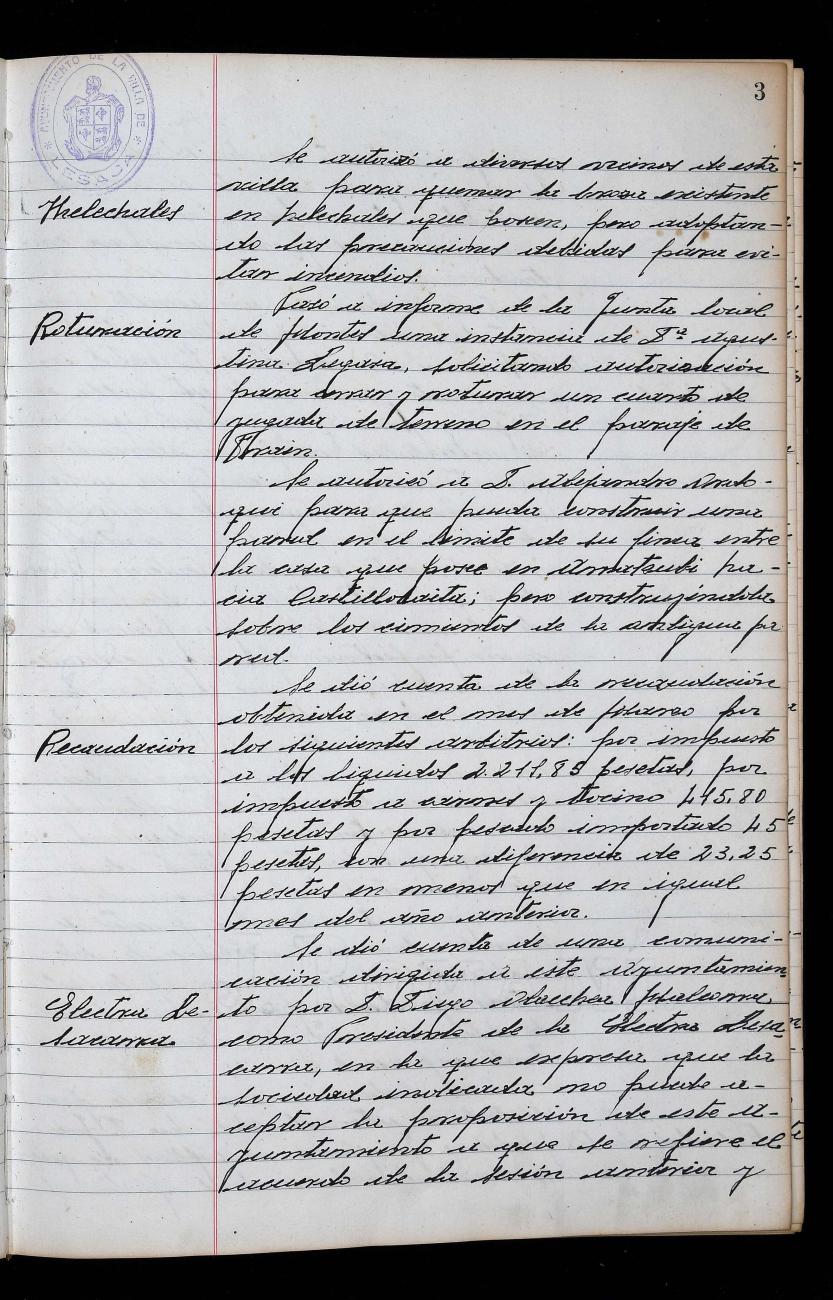 3
AYUNTAMIENTO DE LA VILLA DE
LESACA
Se autorizó a diversos vecinos de esta
villa para quemar la broza existente
Helechales
en helechales que poseen, pero adoptan-
do las precauciones debidas para evi-
tar incendios.
Pasó a informe de la Junta local
Roturación
de Montes una instancia de Dª Agus-
tina Legasa, solicitando autorización
para cerrar y roturar un cuarto de
yugada de terreno en el paraje de
Se autorizó a D. Alejandro
qui para que pueda construir una
pared en el límite de su finca entre
la casa que posee en ha-
cia; pero construyéndola
sobre los cimientos de la antigua pa
red.
Se dió cuenta de la recaudación
obtenida en el mes de Marzo por
Recaudación
los siguientes arbitrios: por impuesto
a los líquidos 2.211,85 pesetas, por
impuesto a carnes y tocino 415,80
pesetas y por pescado importado 45
pesetas, con una diferencia de 23,25
pesetas en menos que en igual
mes del año anterior.
Se dió cuenta de una comuni-
cación dirigida a este Ayuntamien
Electra Le-
sacarra
to por D. Diego
como Presidente de la Electra Lesa
carra, en la que expresa que la
sociedad indicada no puede a-
ceptar la proposición de este A-
yuntamiento a que se refiere el
acuerdo de la sesión anterior y